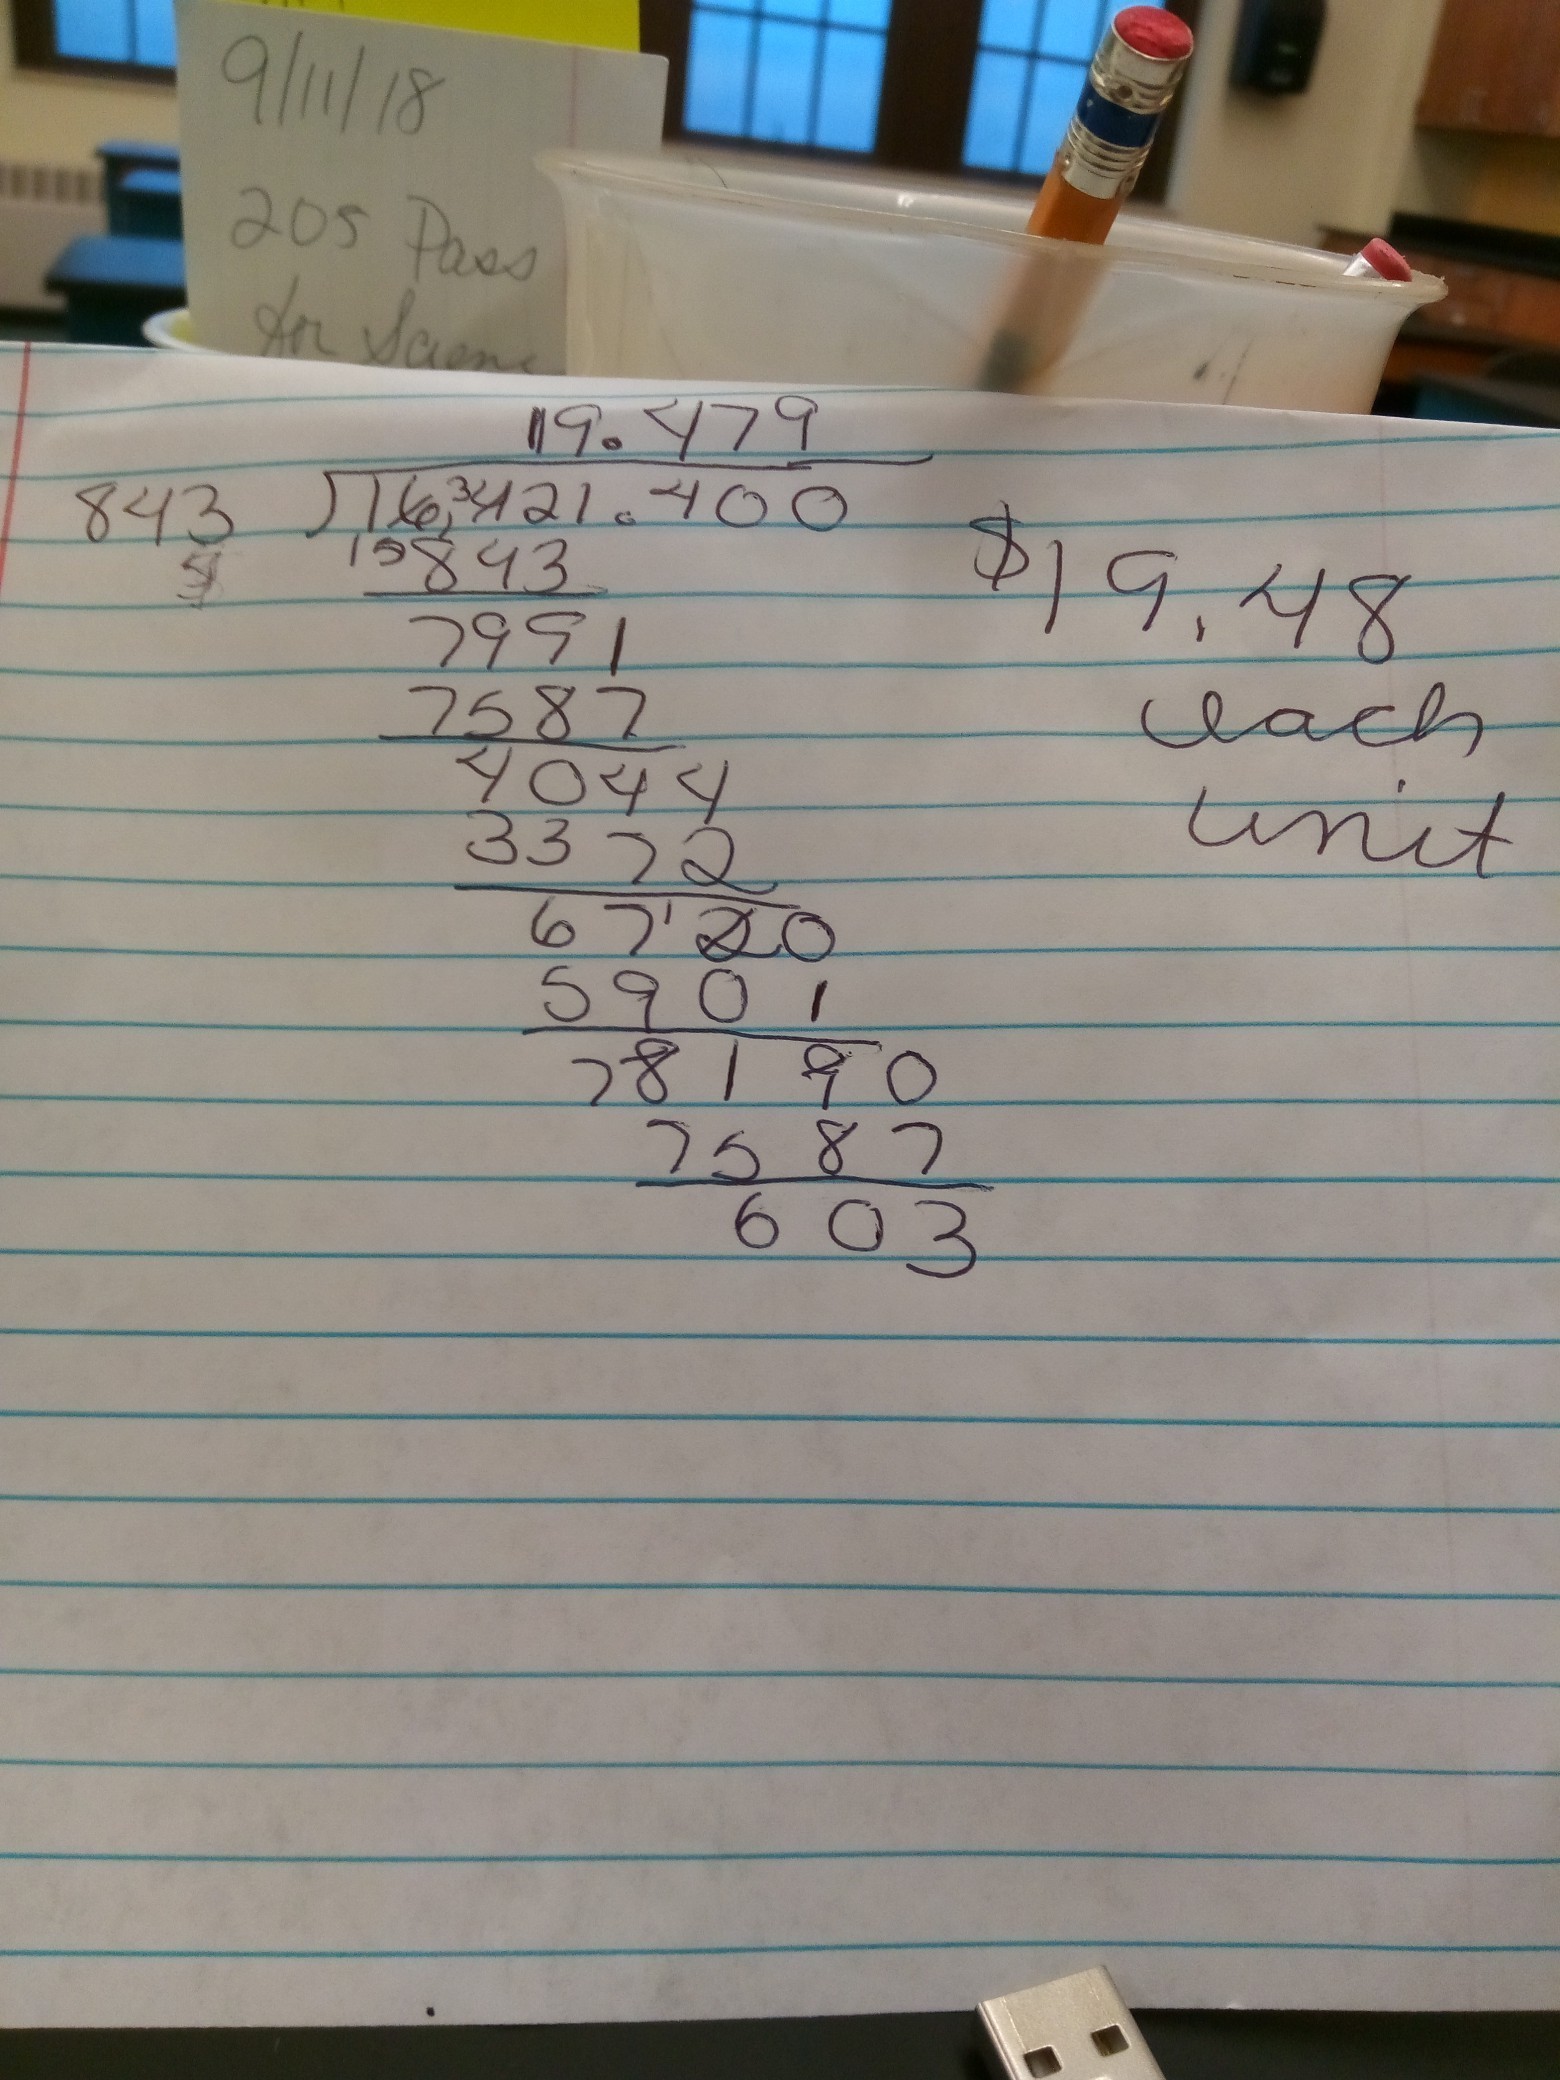 9/11/18
205 Pass
for Scienc
19.479
843 16,421.400
843
7991
7587
4044
3372
6720
5901
78190
7587
603
$19.48
each
unit